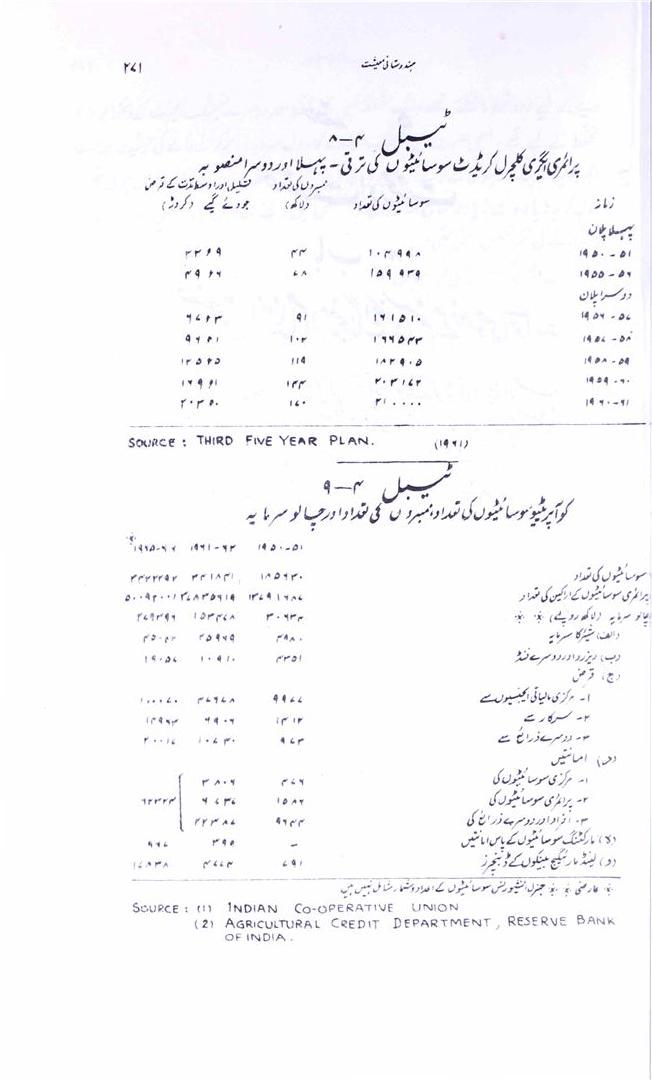 ہندوستانی معیشت ۲۷۱
ٹیبل ۴-۸
پرائمری ایگری کلچرل کریڈٹ سوسائیٹیوں کی ترقی ۔ پہلا اور دوسرا منصوبہ
زمانہ سوسائیٹیوں کی تعداد ممبروں کی تعداد (لاکھ) قلیل اور اوسط مدت کے قرض جو دئے گیے (کروڑ)
پہلا پلان
۱۹۵۰-۵۱ ۱۰۴۹۹۸ ۴۴ ۲۲٫۹
۱۹۵۵-۵۶ ۱۵۹۹۳۹ ۷۸ ۴۹٫۶
دوسرا پلان
۱۹۵۶-۵۷ ۱۶۱۵۱۰ ۹۱ ۶۷٫۳
۱۹۵۷-۵۸ ۱۶۶۵۴۳ ۱۰۲ ۹۶٫۱
۱۹۵۸-۵۹ ۱۸۲۹۰۵ ۱۱۹ ۱۲۵٫۵
۱۹۵۹-۶۰ ۲۰۳۱۷۲ ۱۴۴ ۱۶۹٫۱
۱۹۶۰-۶۱ ۲۱۰۰۰۰ ۱۷۰
SOURCE : THIRD FIVE YEAR PLAN. (۱۹۶۱)
ٹیبل ۴-۹
کوآپریٹیو سوسائیٹیوں کی تعداد، ممبروں کی تعداد اور چالو سرمایہ
۱۹۵۰-۵۱ ۱۹۶۱-۶۲ ۱۹۶۵-۶۶
سوسائیٹیوں کی تعداد ۱۸۵۶۳۰ ۳۴۱۸۴۱
پرائمری سوسائیٹیوں کے اراکین کی تعداد ۱۳۷۹۱۶۸۷ ۳۷۸۳۵۶۱۹ ۵۰۰۹۲۰۰۱
چالو سرمایہ (لاکھ روپے) ۳۰۶۳۴ ۱۵۳۴۷۸ ۲۷۹۳۹۶
(الف) شیئر کا سرمایہ ۴۹۸۰ ۲۵۹۶۹
(ب) ریزرو اور دوسرے فنڈ ۴۳۵۱ ۱۰۹۱۰ ۱۹۰۵۷
(ج) قرض
۱۔ مرکزی مالیاتی ایجنسیوں سے ۹۹۷۷ ۴۷۶۷۸ ۱۰۰۰۷۰
۲۔ سرکار سے ۱۴۱۲ ۶۹۰۶ ۱۴۹۶۳
۳۔ دوسرے ذرائع سے ۹۷۳ ۱۰۷۳۰ ۲۰۰۱۷
(د) امانتیں
۱۔ مرکزی سوسائیٹیوں کی ۴۷۶ ۳۸۰۶
۲۔ پرائمری سوسائیٹیوں کی ۱۵۸۶ ۶۷۳۷ ۶۲۳۲۴
۳۔ افراد اور دوسرے ذرائع کی ۹۶۴۴ ۲۲۳۸۷
(ہ) مارکٹنگ سوسائیٹیوں کے پاس امانتیں - ۳۹۵ ۹۶۷
(و) لینڈ مارٹگیج بینکوں کے ڈبنچرز ۷۹۱ ۴۷۷۴ ۱۷۸۳۸
* عارضی ** جنرل انشیورینس سوسائیٹیوں کے اعداد و شمار شامل نہیں ہیں
SOURCE : (1) INDIAN CO-OPERATIVE UNION
(2) AGRICULTURAL CREDIT DEPARTMENT, RESERVE BANK
OF INDIA.